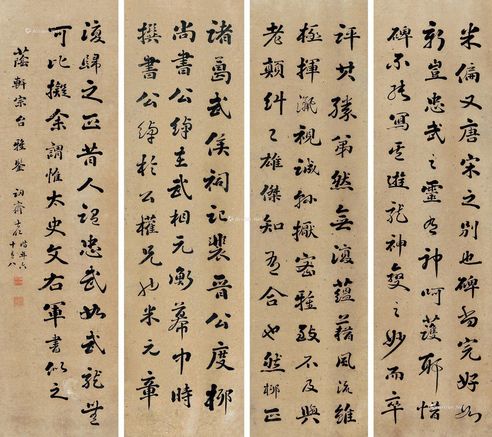 米偏又唐宋之別也碑尚完好如
新豈忠武之靈有神呵護耶惜
碑不能寫其遊龍神變之妙而卒
評其勝弟然無復蘊藉風流維
極揮灑視誠懸密雅致不及與
老顛糾〻雄傑知有合也然柳正
諸葛武侯祠記裴晉公度柳
尚書公綽在武相元衡幕中時
撰書公綽於公權兄也米元章
復歸之正昔人謂忠武如武龍無
可比擬余謂惟太史文右軍書似之
蔭軒宗台雅鑒
訒齋
時年六十有八